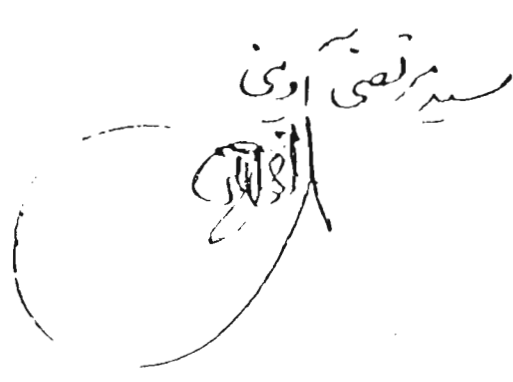 سید مرتضی آوینی